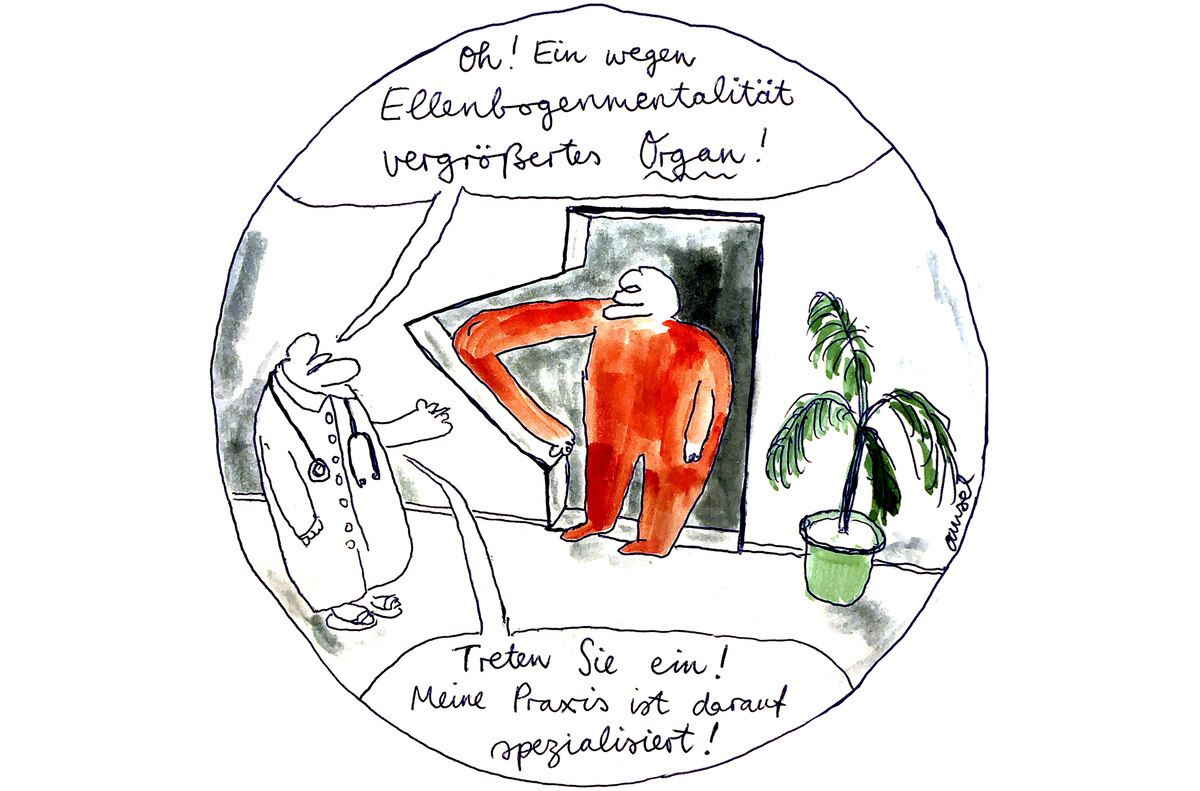 Oh! Ein wegen
Ellenbogenmentalität
vergrößertes Organ!
Treten Sie ein!
Meine Praxis ist darauf
spezialisiert!